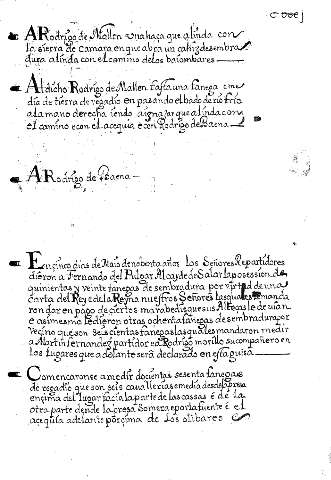 A Rodrigo de Mallen una haça que alinda con
la sierra de camara en que abra un cahiz de sembra
dura alinda con el camino de los baiombares
Al dicho Rodrigo de Mallen fasta una fanega e me
dia de tierra de regadio en pasando el bado de rio frio
a la mano derecha iendo a que alinda con
el camino e con el acequia e con Rodrigo de Baena
A Rodrigo de Baena
En cinco dias de Maio de nobenta años los Señores Repartidores
dieron a Fernando del Pulgar Alcayde de Salar la posession de
quinientas y veinte fanegas de sembradura por virtud de una
carta del Rey e de la Reyna nuestros Señores las quales e manda
ron dar en pago de çiertos marabedis que sus Altezas le devian
e asimesmo le dieron otras ochenta fanegas de sembradura por
vecino que son seiscientas fanegas las quales mandaron medir
a Martin Fernandez partidor e a Rodrigo morillo su compañero en
los lugares que adelante será declarado en esta guisa
Comencaronse a medir docientas sesenta fanegas
de regadio que son seis cavallerias e media desde la presa
ençima del lugar facia la parte de las cassas é de la
otra parte dende la presa Somera por la fuente é el
acequia adelante por çima de los olibares